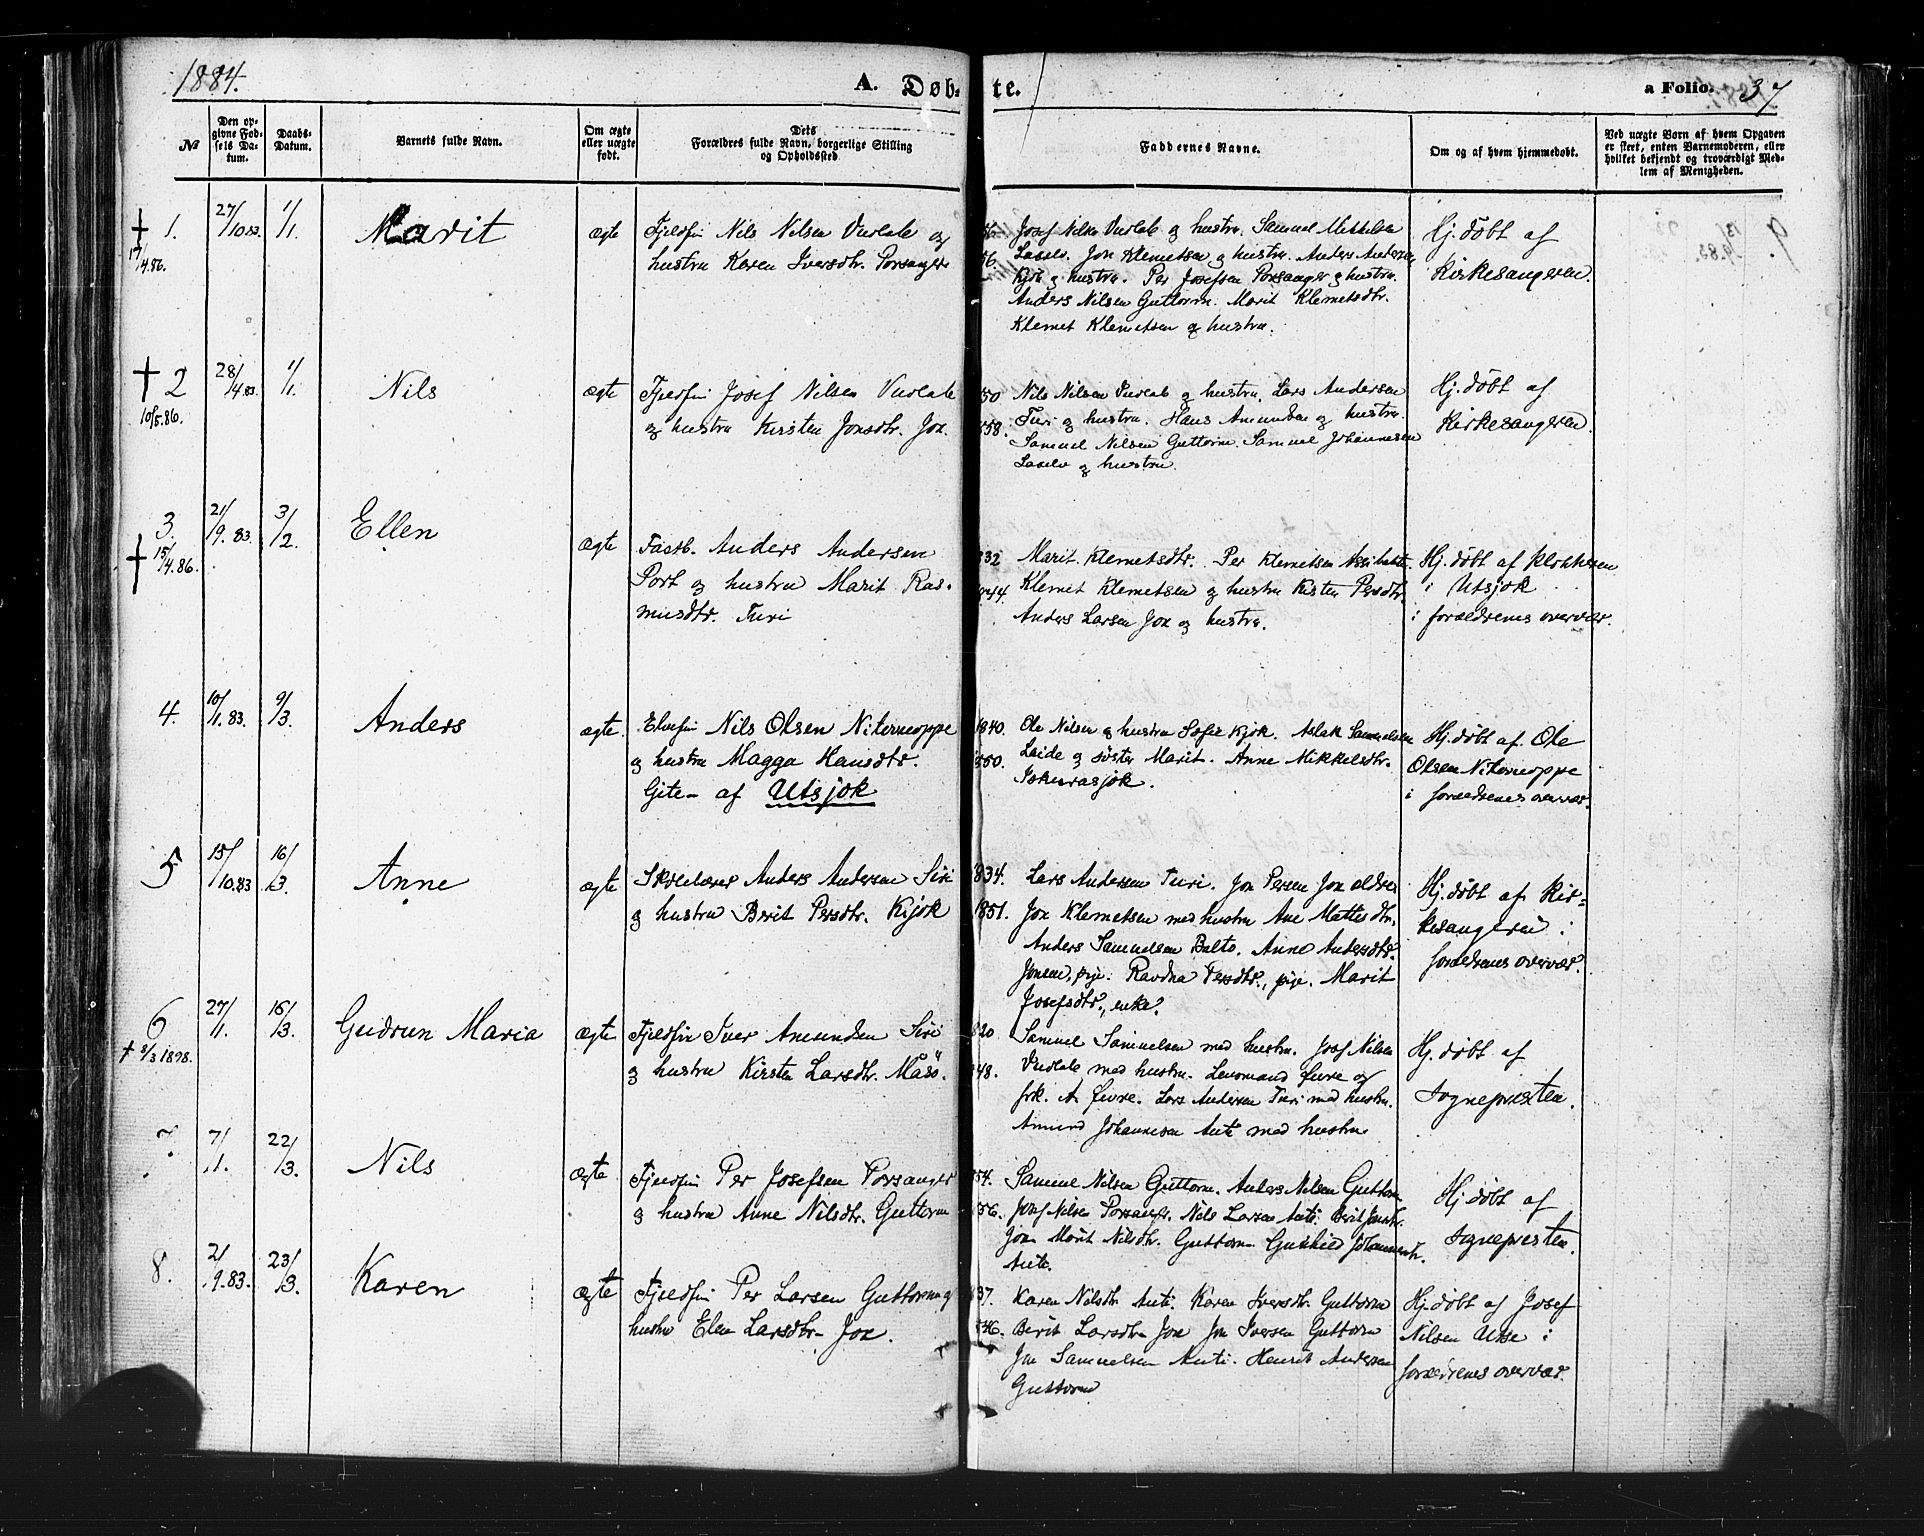 1884.
A. Døb- te.
a Folio. 37
№
Den opgivne Fødsels Datum.
Daabs-Datum.
Barnets fulde Navn.
Om ægte eller uægte født.
Dets Forældres fulde Navn, borgerlige Stilling og Opholdssted.
Faddernes Navne.
Om og af hvem hjemmedøbt.
Ved uægte Børn af hvem Opgaven er skeet, enten Barnemoderen, eller hvilket bekjendt og troværdigt Medlem af Menigheden.
† 1. 27/10 83. 1/1. Marit ægte
17/4.86.
Fjeldfin Nils Nilsen Vuolab og
hustru Karen Iversdtr. Porsanger
56. Josef Nilsen Vuolab og hustru. Samuel Mikkelsen
56. Jon Klemetsen og hustru. Anders Andersen
Kjøk og hustru. Per Josefsen Porsanger og hustru.
Anders Nilsen Guttorm. Marit Klemetsdtr.
Klemet Klemetsen og hustru.
Hj. døbt af
kirkesangeren.
† 2 28/4.83. 1/1. Nils ægte
10/5.86.
Fjeldfin Josef Nilsen Vuolab
og hustru Kirsten Jonsdtr. Jox.
50 Nils Nilsen Vuolab og hustru. Lars Andersen
58. Turi og hustru. Hans Amundsen og hustru.
Samuel Nilsen Guttorm. Samuel Johannesen
og hustru.
Hj. døbt af
kirkesangeren.
3. 21/9. 83. 3/2. Ellen ægte
† 15/4.86.
Fastb. Anders Andersen
Port og hustru Marit Ras-
musdtr. Turi
832 Marit Klemetsdtr. Per Klemetsen
44. Klemet Klemetsen og hustru Kirsten Persdtr.
Anders Larsen Jox og hustru.
Hj. døbt af klokkeren
i Utsjok
i forældrenes overvær.
4. 10/1. 83. 9/3. Anders ægte.
Elvefin Nils Olsen Niterneoppe
og hustru Magga Hansdtr.
Gite- af Utsjok
1840. Ole Nilsen og hustru Sofie Kjøk. Aslak Samuelsen
1850. Laide og søster Marit. Anne Mikkelsdtr.
Hj. døbt af Ole
Olsen Niterneoppe
i forældrenes overvær.
5 15/10.83 16/3. Anne ægte
Skolelærer Anders Andersen Siri
og hustru Berit Persdtr. Kijøk
834. Lars Andersen Turi. Jon Persen Jox ældre
1851. Jon Klemetsen med hustru Ane Mattisdtr.
Anders Samuelsen Balto. Anne Andersdtr.
Jonsen, pige. Ravdna Persdtr., pige. Marit
Josefsdtr., enke.
Hj. døbt af kir-
kesangeren i
forældrenes overvær.
6 27/1. 16/3. Gudrun Maria ægte
† 8/3 1898.
Fjeldfin Iver Amunden Siri
og hustru Kirsten Larsdtr. Måsø.
820 Samuel Samuelsen med hustru. Josef Nilsen
48. Vuolab med hustru. Lensmand Fivre og
frk. A. Fivre. Lars Andersen Turi med hustru.
Amund Johannesen Anti med hustru
Hj. døbt af
sognepresten.
7. 7/1. 22/3. Nils ægte
Fjeldfin Per Josefsen Porsanger
og hustru Anne Nilsdtr. Guttorm
54. Samuel Nilsen Guttorm. Anders Nilsen Guttorm
56. Josef Nilsen Porsanger. Nils Larsen Anti. Berit Jonsdtr.
Jox. Marit Nilsdtr. Guttorm
Anti.
Hj. døbt af
sognepresten.
8. 21/9.83. 23/3. Karen ægte
Fjeldfin Per Larsen Guttorm og
hustru Elen Larsdtr. Jox.
37. Karen Nilsdtr. Anti. Karen Iversdtr. Guttorm
46. Berit Larsdtr. Jox Jon Iversen Guttorm
Jon Samuelsen Anti. Henrik Andersen
Guttorm
Hj. døbt af Josef
Nilsen Utse i
forældrenes overvær.